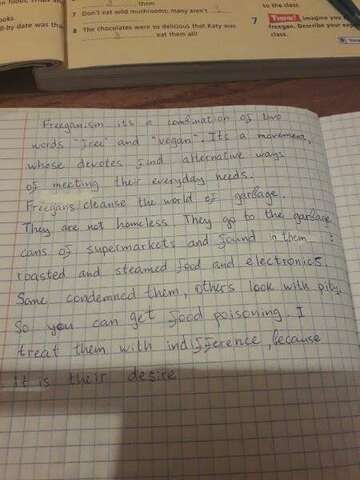 them
7 Don't eat wild mushrooms; many aren't
8 The chocolates were so delicious that Katy was
3 eat them all!
to the class.
7 Imagine you
freegan. Describe your exp
class.
ooks.
l-by date was tha
Freeganism its a combination of two
words "free" and "vegan". Its a movement,
whose devotes find alternative ways
of meeting their everyday needs.
Freegans cleanse the world of garbage.
They are not homeless They go to the garbage
cans of supermarkets and found in them :
roasted and steamed food and electronics.
Some condemned them, others look with pity.
So you can get food poisoning. I
treat them with indifference, because
it is their desire